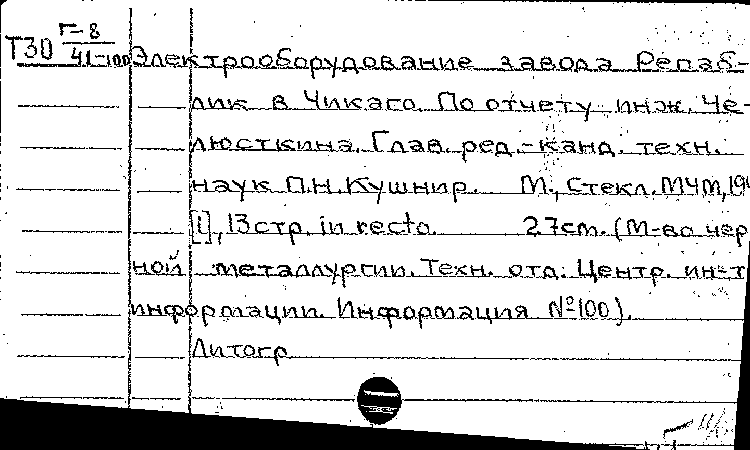 Т30 Г-8
41-100 Электрооборудование завода Репаб-
лик в Чикаго. По отчету инж. Че-
люсткина. Глав. ред.-канд. техн.
наук П.Н.Кушнир. М., Стекл. МЧМ, 194
[1], 13стр. in recto. 27cm. (М-во чер
ной металлургии. Техн. отд. Центр. ин-т
информации. Информация №100).
Литогр